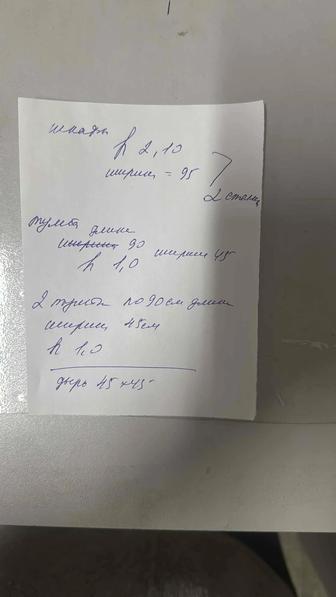 шкафы
h 2,10
ширин = 95
2 стоян
тумба длина
ширина 90 ширин 45
h 1,0
2 тумба по 90 см длина
ширин 45 см
h 1,0
дверь 45 x 45